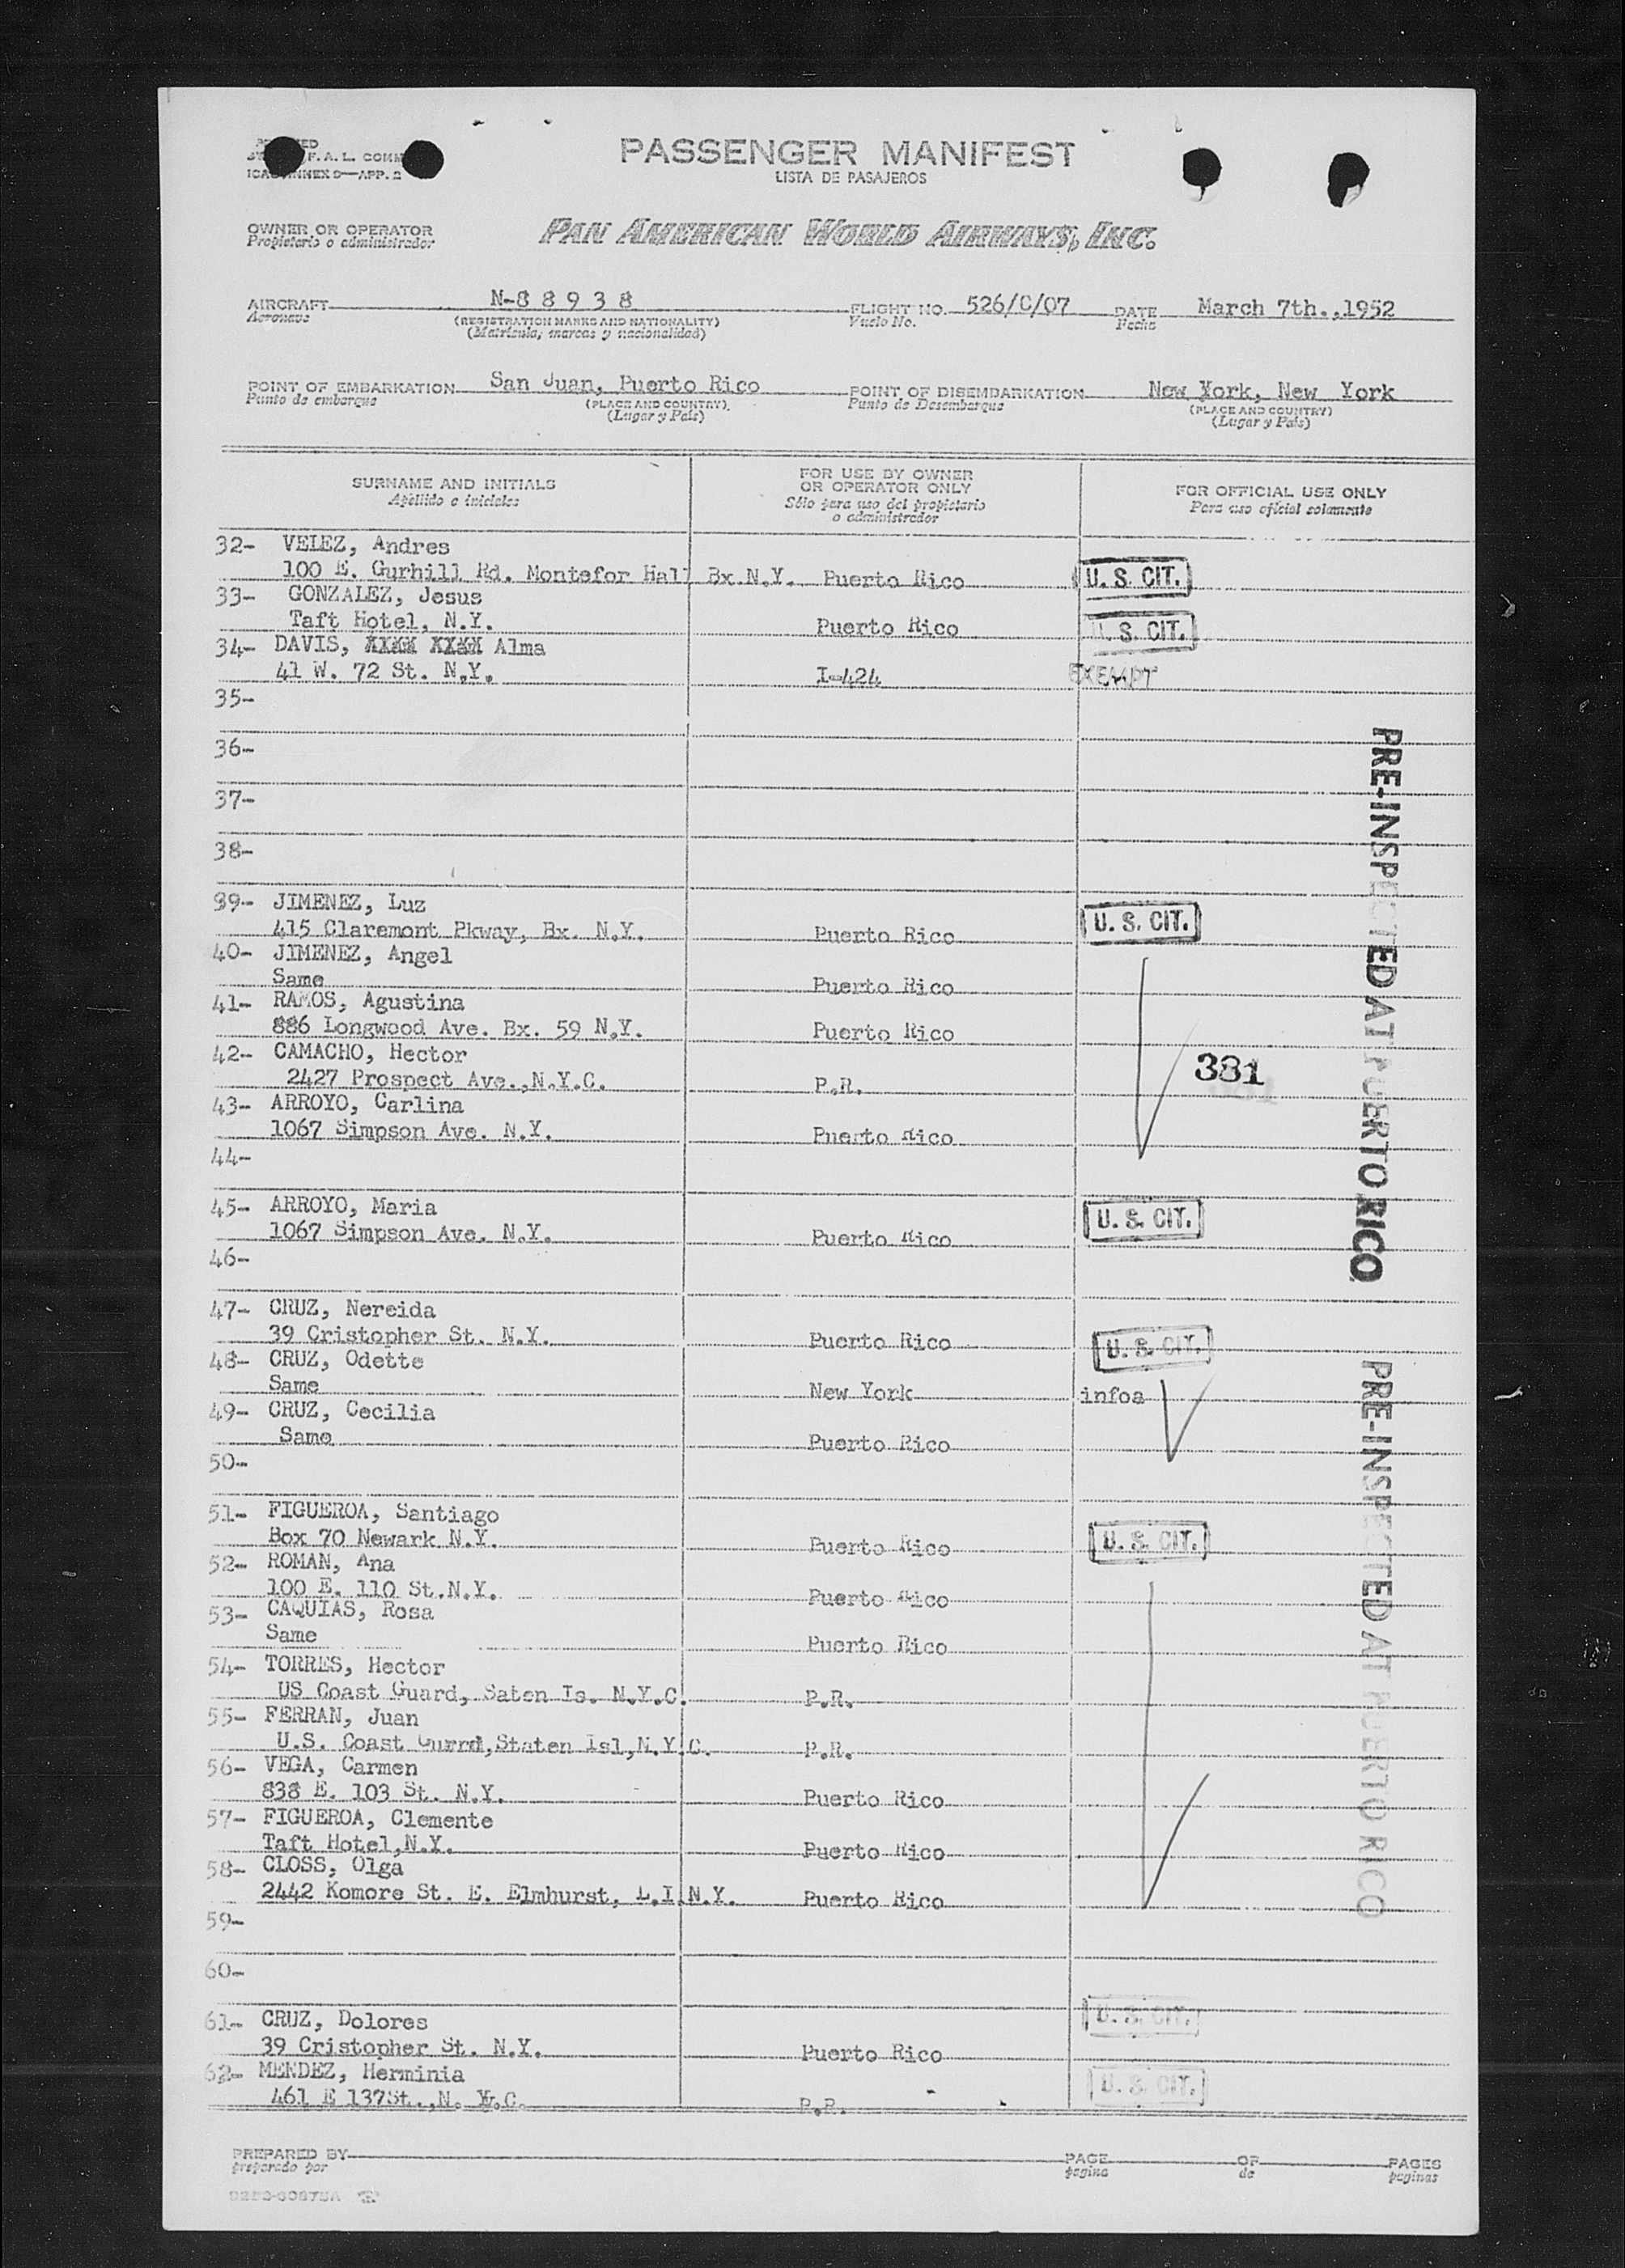 F.A.L. COMM
ICAO ANNEX 9—APP. 2
PASSENGER MANIFEST
LISTA DE PASAJEROS
OWNER OR OPERATOR
Propietario o administrador
PAN AMERICAN WORLD AIRWAYS, INC.
AIRCRAFT N-8 8 9 3 8 FLIGHT NO. 526/C/07 DATE March 7th.,1952
Aeronave (REGISTRATION MARKS AND NATIONALITY) Vuelo No. Fecha
(Matricula, marcas y nacionalidad)
POINT OF EMBARKATION San Juan, Puerto Rico POINT OF DISEMBARKATION New York, New York
Punto de embarque (PLACE AND COUNTRY) Punto de Desembarque (PLACE AND COUNTRY)
(Lugar y País) (Lugar y País)
SURNAME AND INITIALS
Apellido e iniciales
FOR USE BY OWNER
OR OPERATOR ONLY
Sólo para uso del propietario
o administrador
FOR OFFICIAL USE ONLY
Para uso oficial solamente
32- VELEZ, Andres
100 E. Gurhill Rd. Montefor Hall Bx.N.Y. Puerto Rico U. S. CIT.
33- GONZALEZ, Jesus
Taft Hotel, N.Y. Puerto Rico U. S. CIT.
34- DAVIS, Alma
41 W. 72 St. N.Y. I-424 EXEMPT
35-
36-
37-
38-
39- JIMENEZ, Luz
415 Claremont Pkway, Bx. N.Y. Puerto Rico U. S. CIT.
40- JIMENEZ, Angel
Same Puerto Rico
41- RAMOS, Agustina
886 Longwood Ave. Bx. 59 N.Y. Puerto Rico
42- CAMACHO, Hector
2427 Prospect Ave.,N.Y.C. P.R. 381
43- ARROYO, Carlina
1067 Simpson Ave. N.Y. Puerto Rico
44-
45- ARROYO, Maria
1067 Simpson Ave. N.Y. Puerto Rico U. S. CIT.
46-
47- CRUZ, Nereida
39 Cristopher St. N.Y. Puerto Rico U. S. CIT.
48- CRUZ, Odette
Same New York infoa
49- CRUZ, Cecilia
Same Puerto Rico
50-
51- FIGUEROA, Santiago
Box 70 Newark N.Y. Puerto Rico U. S. CIT.
52- ROMAN, Ana
100 E. 110 St.N.Y. Puerto Rico
53- CAQUIAS, Rosa
Same Puerto Rico
54- TORRES, Hector
US Coast Guard, Saten Is. N.Y.C. P.R.
55- FERRAN, Juan
U.S. Coast Gurrd,Staten Isl,N.Y.C. P.R.
56- VEGA, Carmen
838 E. 103 St. N.Y. Puerto Rico
57- FIGUEROA, Clemente
Taft Hotel,N.Y. Puerto Rico
58- CLOSS, Olga
2442 Komore St. E. Elmhurst, L.I.N.Y. Puerto Rico
59-
60-
61- CRUZ, Dolores U. S. CIT.
39 Cristopher St. N.Y. Puerto Rico
62- MENDEZ, Herminia U. S. CIT.
461 E 137St.,N. Y.C. P.R.
PRE-INSPECTED AT PUERTO RICO
PRE-INSPECTED AT PUERTO RICO
PREPARED BY PAGE OF PAGES
preparado por pagina de paginas